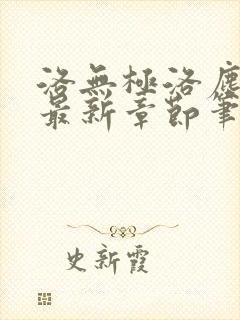 洛無極洛塵
最新章節筆
史新霞